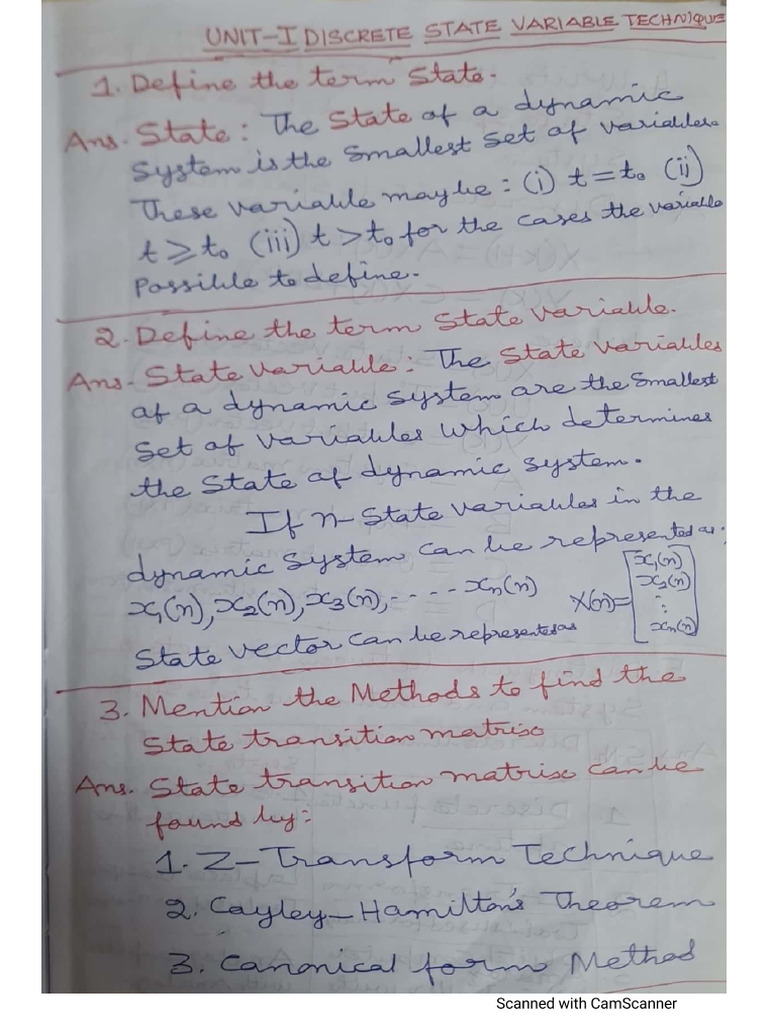 UNIT-I DISCRETE STATE VARIABLE TECHNIQUE
1. Define the term State.
Ans. State: The State of a dynamic
System is the Smallest Set of variables.
These variable maybe: (i) t = t₀ (ii)
t ≥ t₀ (iii) t > t₀ for the cases the variable
Possible to define.
2. Define the term State variable.
Ans. State variable: The State variables
of a dynamic System are the Smallest
Set of variables which determines
the State of dynamic System.
If n-State variables in the
dynamic System can be represented as:
x₁(n), x₂(n), x₃(n), ---- xn(n)
State vector can be represented as
X(n) = [x₁(n)
x₂(n)
:
xn(n)]
3. Mention the Methods to find the
State transition matrix
Ans. State transition matrix can be
found by:
1. Z-Transform Technique
2. Cayley-Hamilton's Theorem
3. Canonical form Method
Scanned with CamScanner